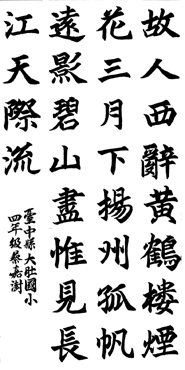 故人西辭黃鶴樓煙
花三月下揚州孤帆
遠影碧山盡惟見長
江天際流
臺中縣大肚國小
四年級蔡嘉澍